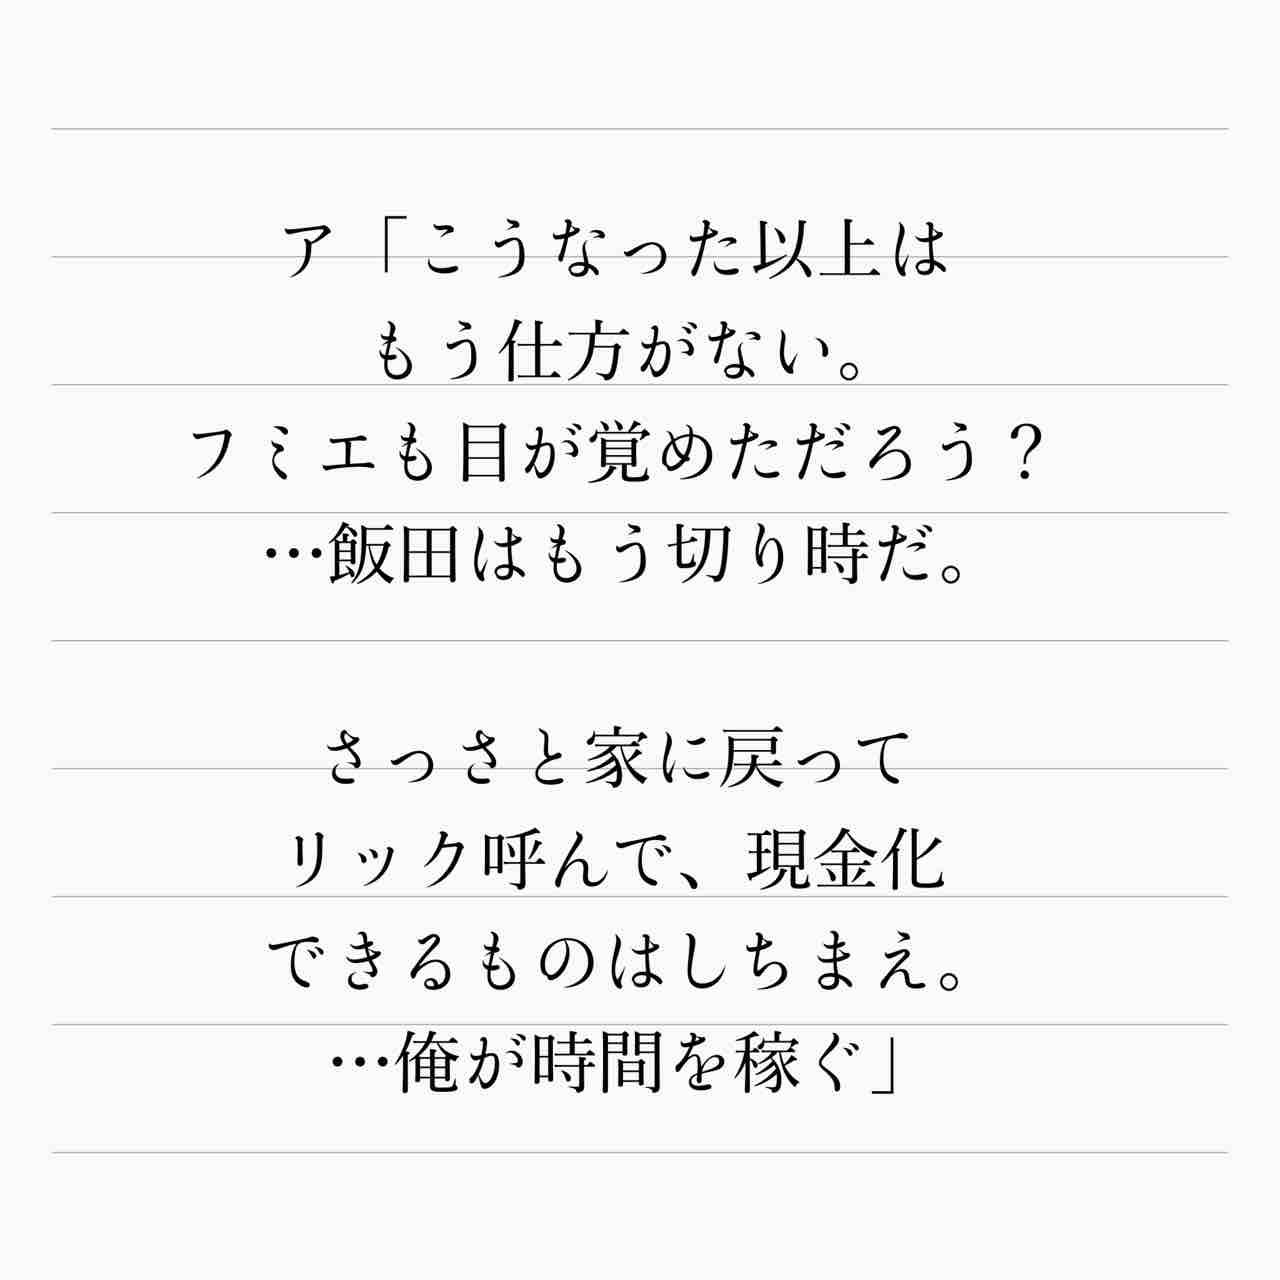 ア「こうなった以上は
もう仕方がない。
フミエも目が覚めただろう？
…飯田はもう切り時だ。
さっさと家に戻って
リック呼んで、現金化
できるものはしちまえ。
…俺が時間を稼ぐ」